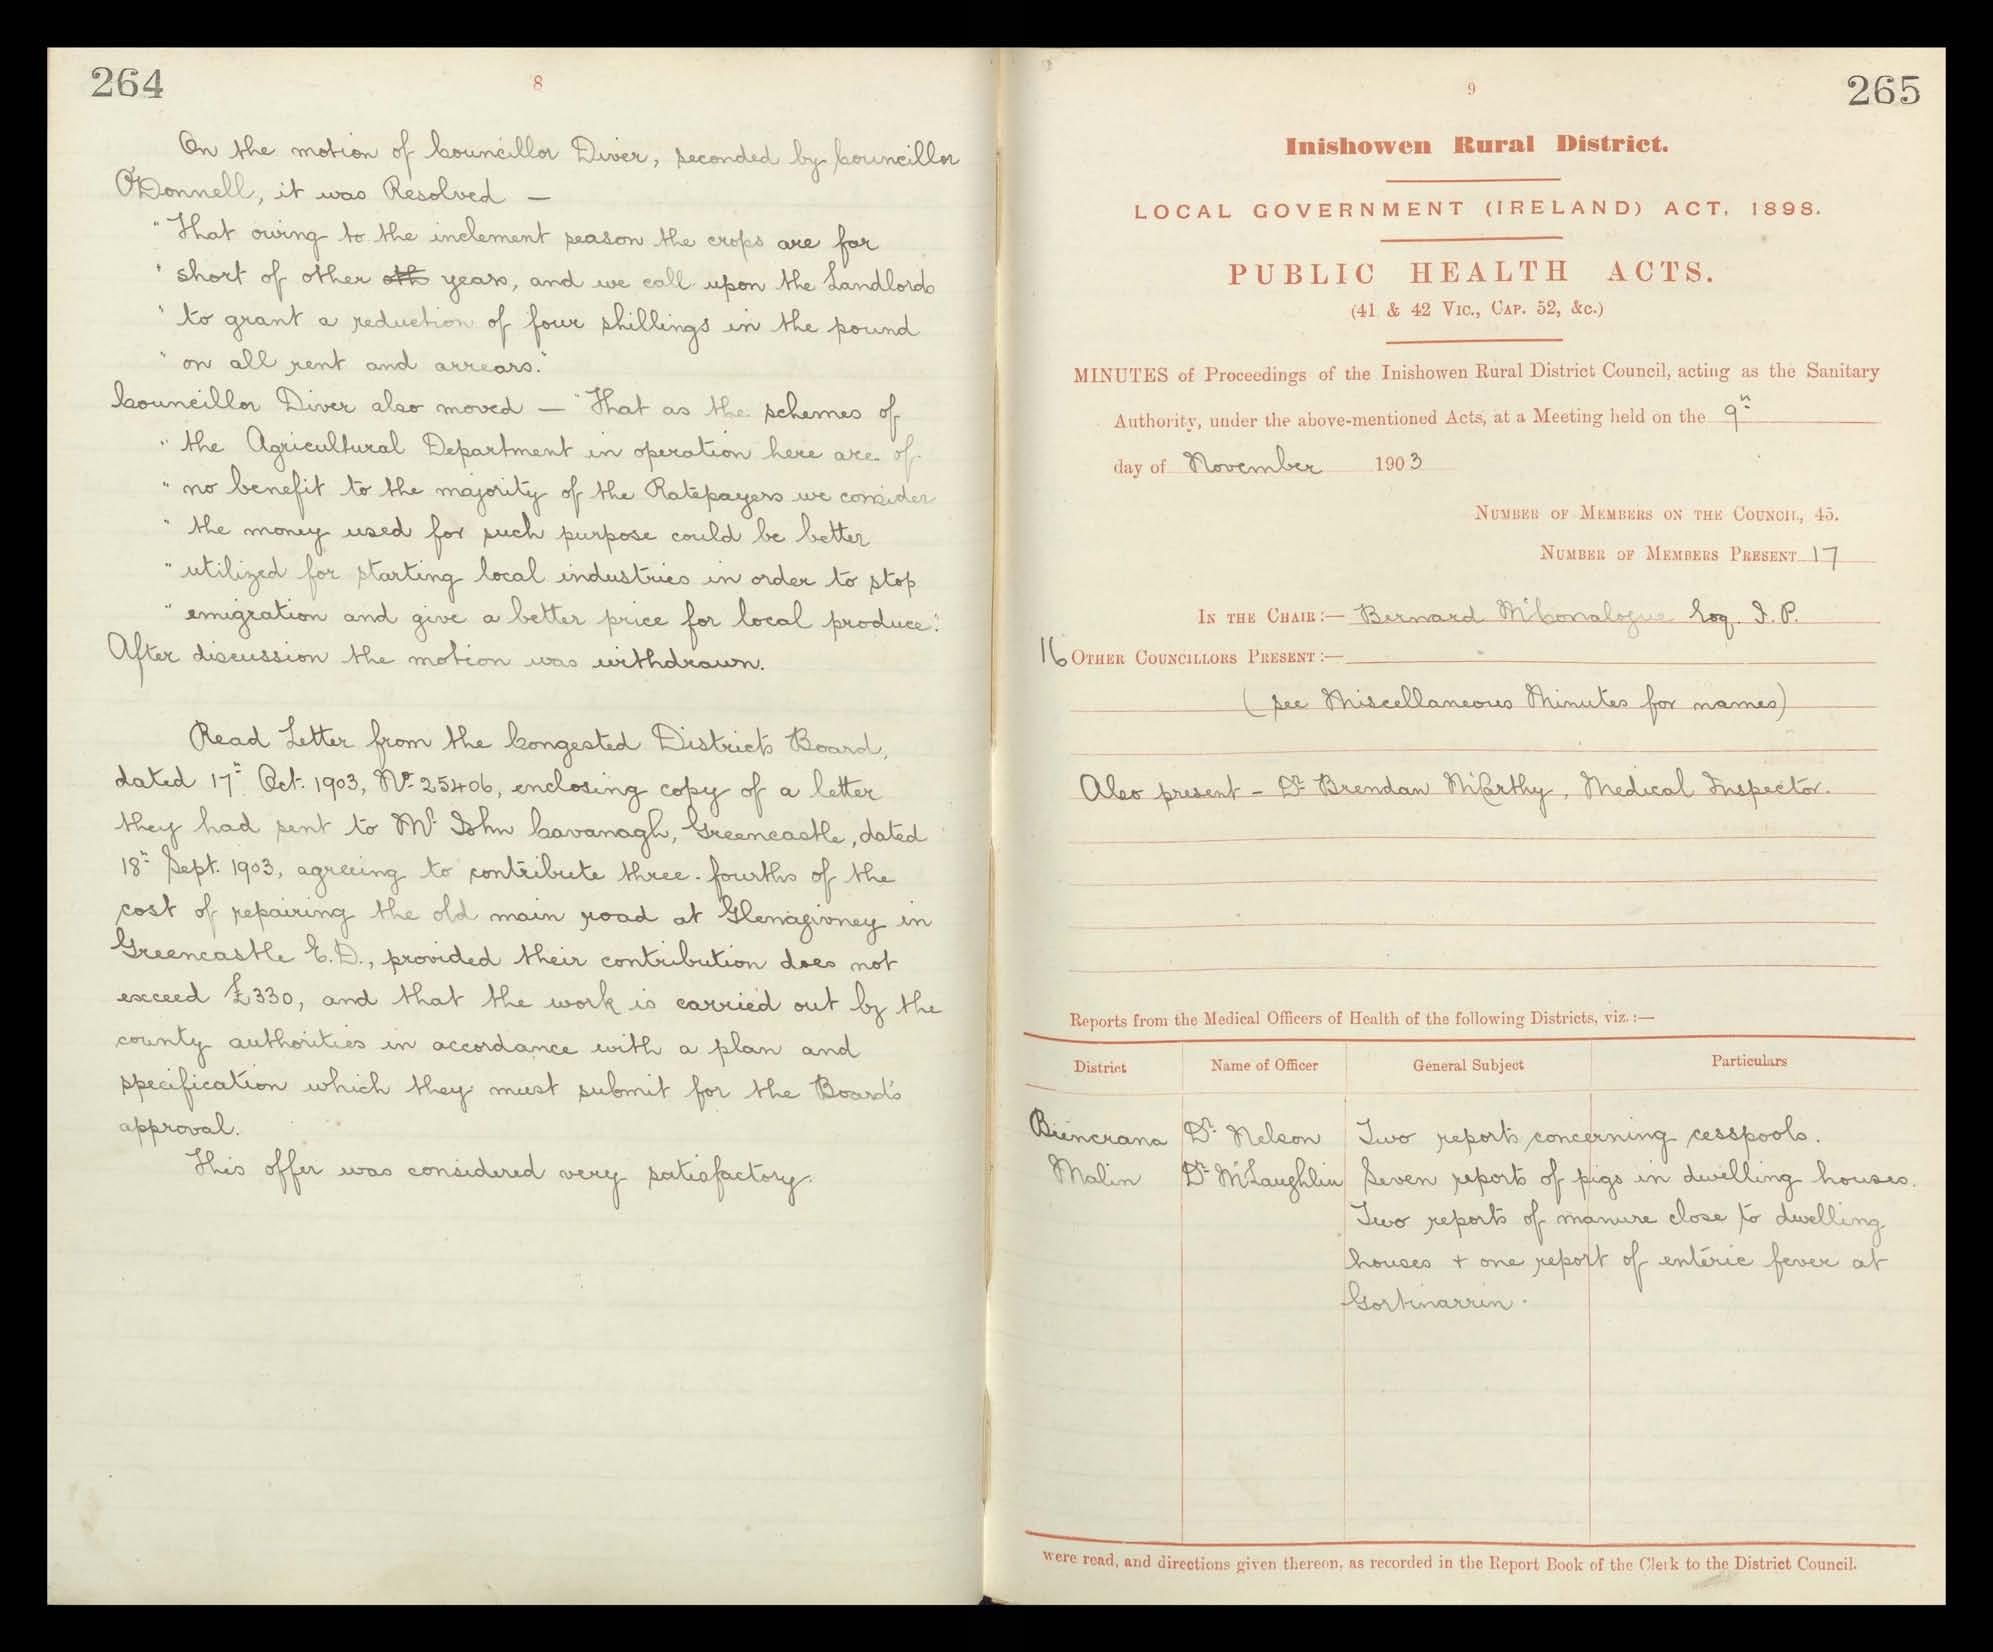 264
8
On the motion of Councillor Diver, seconded by Councillor
O'Donnell, it was Resolved —
" That owing to the inclement season the crops are far
" short of other oth years, and we call upon the Landlords
" to grant a reduction of four shillings in the pound
" on all rent and arrears."
Councillor Diver also moved — "That as the schemes of
" the Agricultural Department in operation here are of
" no benefit to the majority of the Ratepayers we consider
" the money used for such purpose could be better
" utilized for starting local industries in order to stop
" emigration and give a better price for local produce."
After discussion the motion was withdrawn.
Read Letter from the Congested Districts Board,
dated 17th Oct. 1903, No 25406, enclosing copy of a letter
they had sent to Mr John Cavanagh, Greencastle, dated
18th Sept. 1903, agreeing to contribute three-fourths of the
cost of repairing the old main road at Glenagivney in
Greencastle E.D., provided their contribution does not
exceed £330, and that the work is carried out by the
county authorities in accordance with a plan and
specification which they must submit for the Board's
approval.
This offer was considered very satisfactory.
265
9
Inishowen Rural District.
LOCAL GOVERNMENT (IRELAND) ACT, 1898.
PUBLIC HEALTH ACTS.
(41 & 42 Vic., Cap. 52, &c.)
MINUTES of Proceedings of the Inishowen Rural District Council, acting as the Sanitary
Authority, under the above-mentioned Acts, at a Meeting held on the 9th
day of November 1903
Number of Members on the Council, 45.
Number of Members Present 17
In the Chair:— Bernard McConalogue Esq. J.P.
16 Other Councillors Present:—
(see Miscellaneous Minutes for names)
Also present - Dr Brendan McCarthy, Medical Inspector.
Reports from the Medical Officers of Health of the following Districts, viz.:—
District Name of Officer General Subject Particulars
Buncrana Dr Nelson Two reports concerning cesspools.
Malin Dr McLaughlin Seven reports of pigs in dwelling houses.
Two reports of manure close to dwelling
houses + one report of enteric fever at
Gortinarrin.
were read, and directions given thereon, as recorded in the Report Book of the Clerk to the District Council.